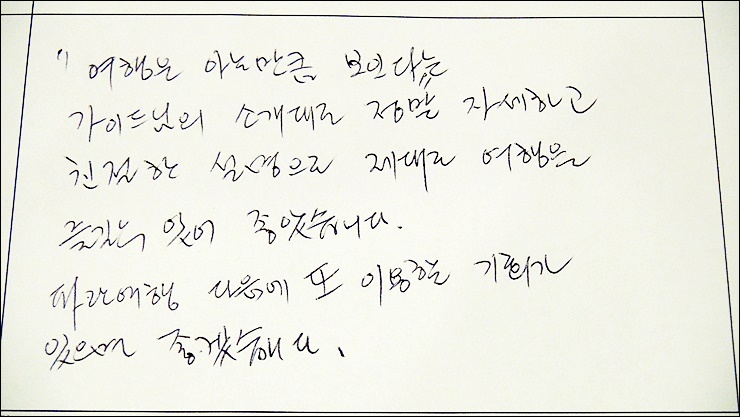 " 여행은 아는만큼 보인다는
가이드님의 소개대로 정말 자세하고
친절한 설명으로 제대로 여행을
즐길수 있어 좋았습니다.
파란여행 다음에 또 이용할 기회가
있으면 좋겠습니다.